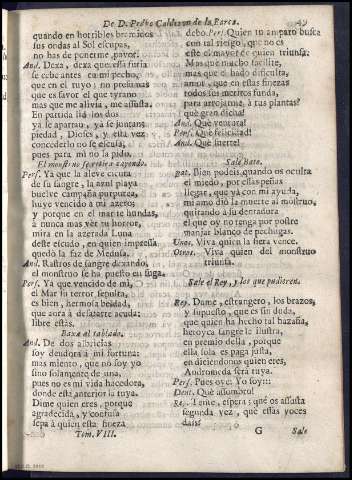 De D. Pedro Calderon de la Barca. 49
quando en horribles bramidos
sus ondas al Sol escupas,
no has de ponerme pavor.
And. Dexa, dexa que essa furia
se cebe antes en mi pecho,
que en el tuyo, no presumas
que es favor el que tyrano
mas que me alivia, me assusta.
En partida las dos
ya se apartan, ya se juntan:
piedad, Dioses, y esta vez
concederlo no se escusa,
pues para mi no la pido.
El monstruo
Pers. Ya que la aleve cicuta
de su sangre, la azul playa
buelve campaña purpurea,
huye vencido à mi azero;
y porque en el mar te hundas,
à nunca mas vèr tu horror,
mira en la azerada Luna
deste escudo, en quien impressa
quedò la faz de Medusa.
And. Rastros de sangre dexando,
el monstruo se ha puesto en fuga.
Pers. Ya que vencido de mi,
el Mar su terror sepulta,
es bien, hermosa beldad,
que aora à desatarte acuda:
libre estàs.
Baxa al tablado.
And. De dos albricias
soy deudora à mi fortuna:
mas miento, que no soy yo
sino solamente de una,
pues no es mi vida hacedora,
donde està anterior la tuya.
Dime quien eres, porque
agradecida, y confusa
sepa à quien esta fineza
Tom. VIII.
debo. Pers. Quien tu amparo busca
con tal riesgo, que no es
este el mayor de quien triunfa.
Mas què mucho facilite,
mas què el hado dificulta,
amor, que en estas finezas
todos sus meritos funda,
para arrojarme à tus plantas?
què gran dicha!
And. Què ventura!
Pers. Què felicidad!
And. Què suerte!
Sale Bato.
Bat. Bien podeis, quando os oculta
el miedo, por essas peñas
llegar, que ya con mi ayuda,
mi amo diò la muerte al mostruo,
quitando à su dentadura
el que oy no tenga por postre
manjar blanco de pechugas.
Unos. Viva quien la fiera vence.
Otros. Viva quien del monstruo
triunfa.
Sale el Rey, y los que pudieren.
Rey. Dame, estrangero, los brazos,
y supuesto, que es sin duda,
que quien ha hecho tal hazaña,
heroyca sangre le ilustra,
en premio della, porque
ella sola es paga justa,
en diciendonos quien eres,
Andromeda serà tuya.
Pers. Pues oye: Yo soy:::
Dent. Què assombro!
Rey. Tente, espera: què os assusta
segunda vez, que essas voces
dais?
G Sale